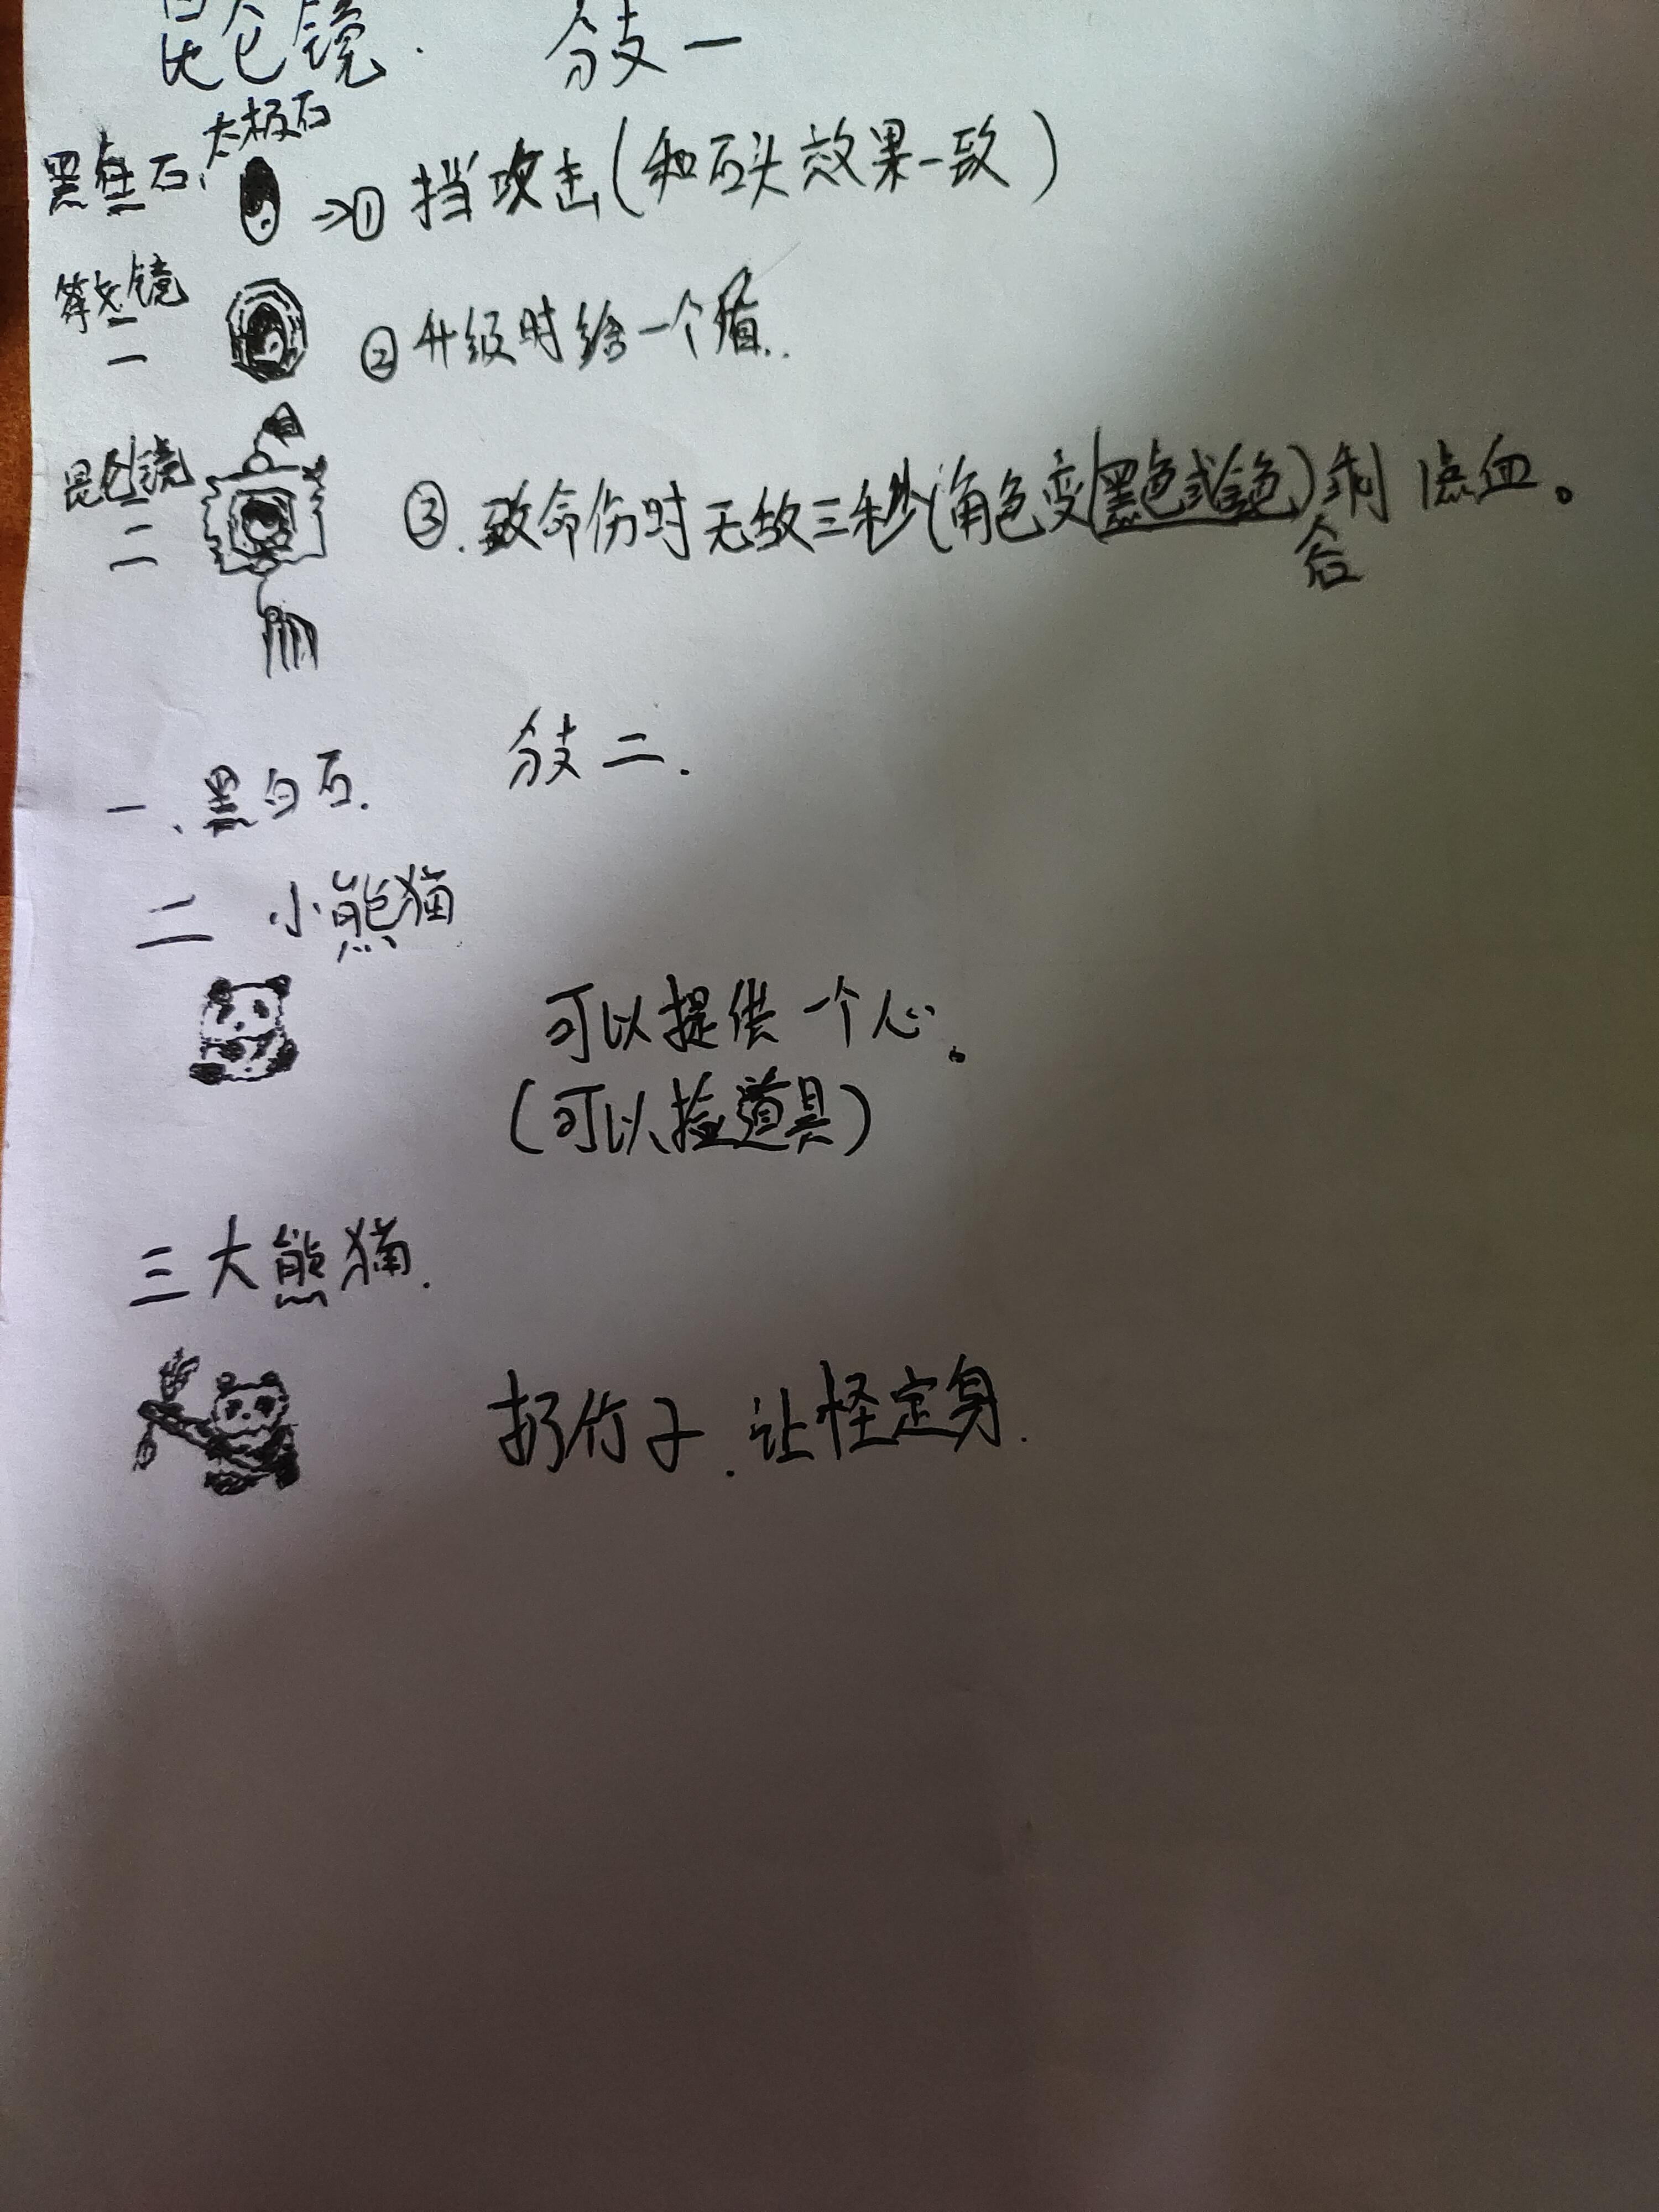 昆仑镜. 分支一
太极石
黑白石、 →① 挡攻击(和石头效果一致)
镜
一 ② 升级时给一个盾..
昆仑镜
二 ③. 致命伤时无敌三秒(角色变(黑色或金色)剩1点血。
分支二.
一、黑白石.
二 小熊猫
可以提供一个心。
(可以捡道具)
三 大熊猫.
扔竹子.让怪定身.